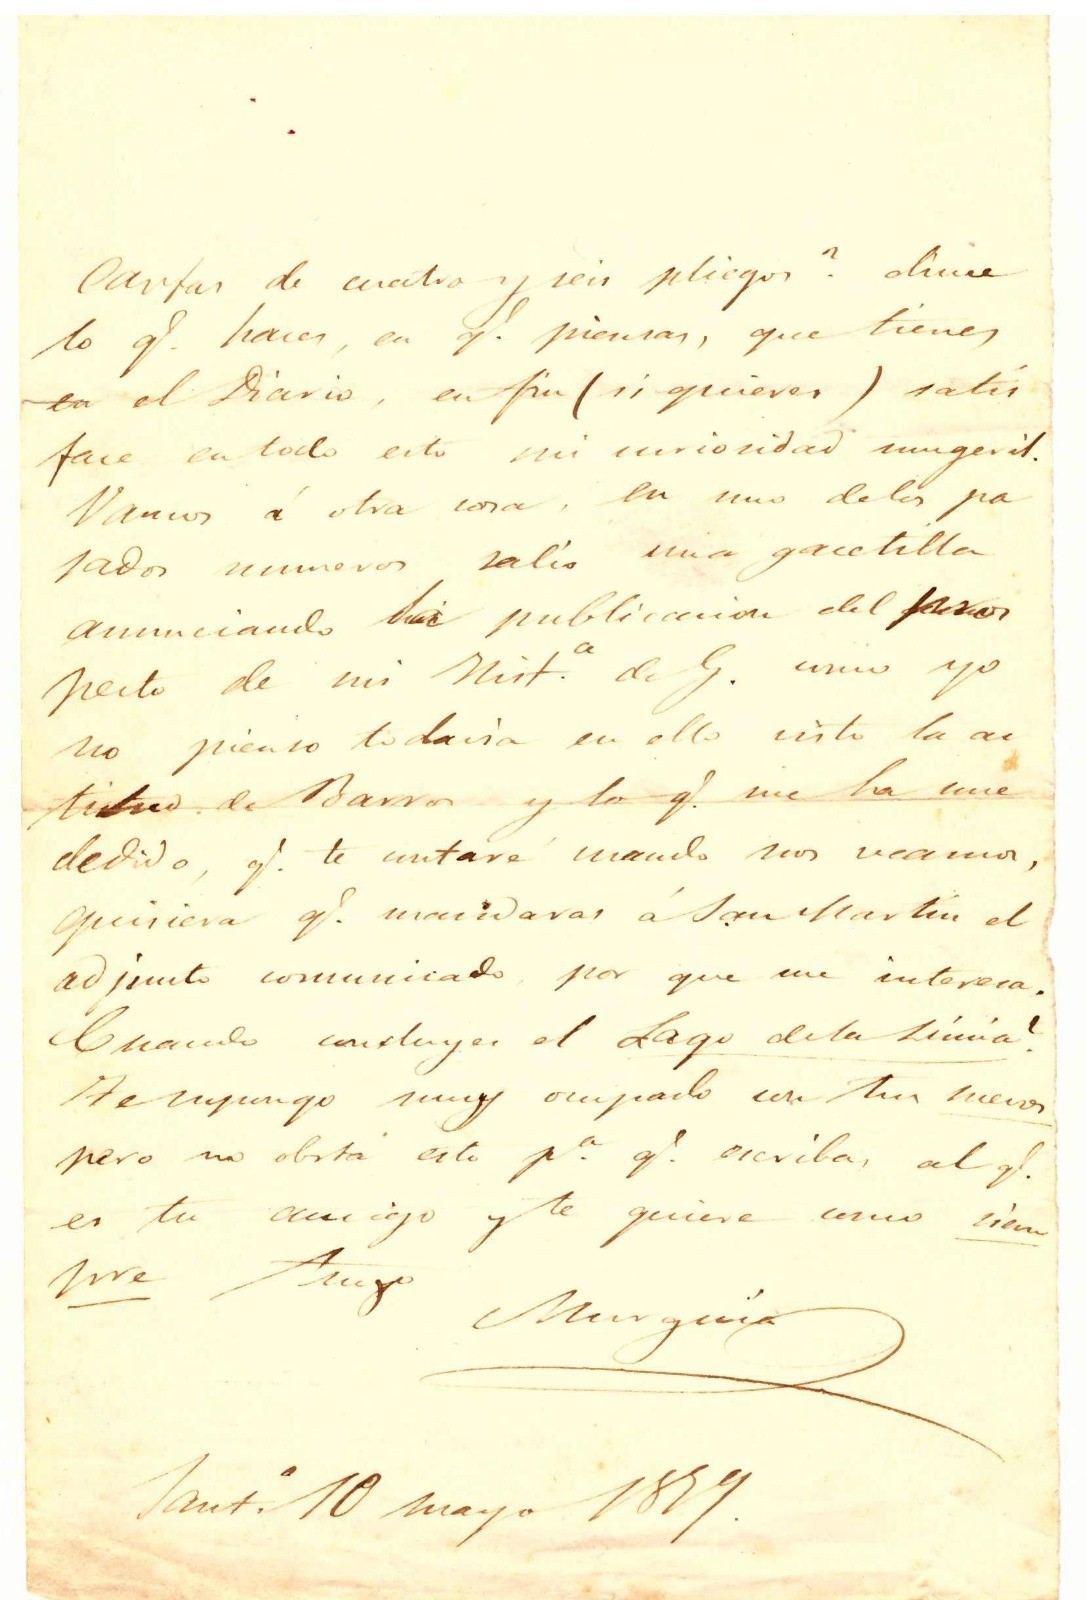 Cartas de cuatro y seis pliegos? dime
lo q.e haces, en q.e piensas, que tienes
en el Diario, en fin (si quieres) satis
face en todo esto mi curiosidad mugeril.
Vamos á otra cosa, en uno delos pa
sados numeros salio una gacetilla
anunciando la publicacion del pros
pecto de mi Hist.a de G. como yo
no pienso todavia en ello visto la ac
titud de Barros y lo q.e me ha suce
dedido, q.e te contaré cuando nos veamos,
quisiera q.e mandaras á San Martin el
adjunto comunicado, por que me interesa.
Cuando concluyes el Lago dela Limia?
Te supongo muy ocupado con tus
pero no obsta esto p.a q.e escribas al q.e
es tu amigo y te quiere como siem
pre Tuyo
Murguia
Sant.o 10 mayo 1859.